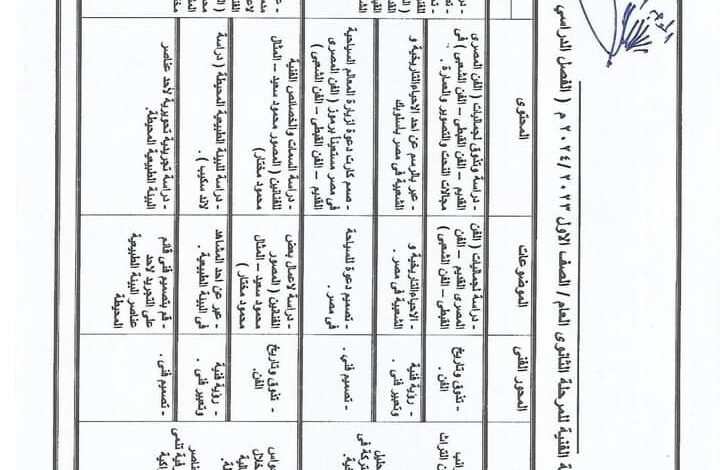 ة الفنية للمرحلة الثانوى العام / الصف الاول ٢٠٢٣ / ٢٠٢٤ م ( الفصل الدراسي
المحور الفنى
الموضوعات
المحتوى
- تذوق وتاريخ
الفن .
- دراسة لجماليات ( الفن
المصرى القديم – الفن
القبطى – الفن الشعبى )
- دراسة وتذوق لجماليات ( الفن المصرى
القديم – الفن القبطى – الفن الشعبى ) فى
مجالات النحت والتصوير والعمارة .
- رؤية فنية
وتعبير فنى .
- الاحياء التاريخية و
الشعبية فى مصر .
- عبر بالرسم عن احد الاحياء التاريخية و
الشعبية فى مصر باسلوبك
- تصميم فني .
- تصميم دعوة للسياحة
فى مصر .
- صمم كارت دعوة لزيارة المعالم السياحية
فى مصر مستعينا برموز ( الفن المصرى
القديم – الفن القبطى – الفن الشعبى )
- تذوق وتاريخ
الفن.
- دراسة لاعمال بعض
الفنانين ( المصور
محمود سعيد – المثال
محمود مختار )
- دراسة السمات والخصائص الفنية
للفنانين ( المصور محمود سعيد – المثال
محمود مختار )
- رؤية فنية
وتعبير فنى .
- عبر عن احد المشاهد
فى البيئة الطبيعية .
- دراسة للبيئة الطبيعية المحيطة ( دراسة
لاند سكيب ) .
- تصميم فنى .
- قم بتصميم فنى قائم
على التجريد لاحد
عناصر البيئة الطبيعية
المحيطة
- دراسة تجريدية تحويرية لأحد عناصر
البيئة الطبيعية المحيطة.